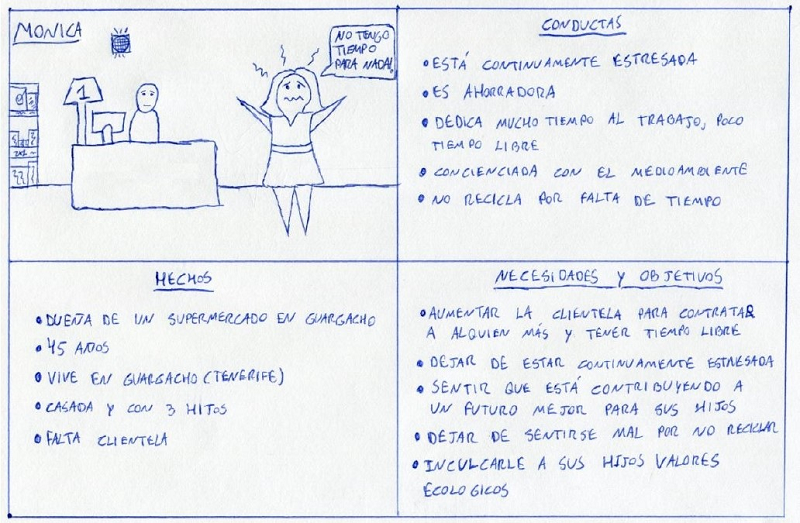 MONICA
NO TENGO
TIEMPO
PARA NADA!
1
CONDUCTAS
• ESTÁ CONTINUAMENTE ESTRESADA
• ES AHORRADORA
• DEDICA MUCHO TIEMPO AL TRABAJO, POCO
TIEMPO LIBRE
• CONCIENCIADA CON EL MEDIOAMBIENTE
• NO RECICLA POR FALTA DE TIEMPO
HECHOS
• DUEÑA DE UN SUPERMERCADO EN GUARGACHO
• 45 AÑOS
• VIVE EN GUARGACHO (TENERIFE)
• CASADA Y CON 3 HIJOS
• FALTA CLIENTELA
NECESIDADES Y OBJETIVOS
• AUMENTAR LA CLIENTELA PARA CONTRATAR
A ALGUIEN MÁS Y TENER TIEMPO LIBRE
• DEJAR DE ESTAR CONTINUAMENTE ESTRESADA
• SENTIR QUE ESTÁ CONTRIBUYENDO A
UN FUTURO MEJOR PARA SUS HIJOS
• DEJAR DE SENTIRSE MAL POR NO RECICLAR
• INCULCARLE A SUS HIJOS VALORES
ECOLOGICOS